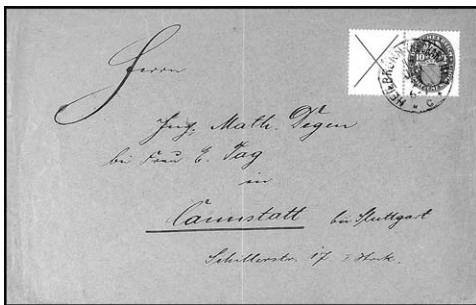 HEILBRONN
10
Herrn
Ing. Math. Degen
bei Frau E. Tag
in
Cannstatt bei Stuttgart
Schillerstr. 17 I Stock.